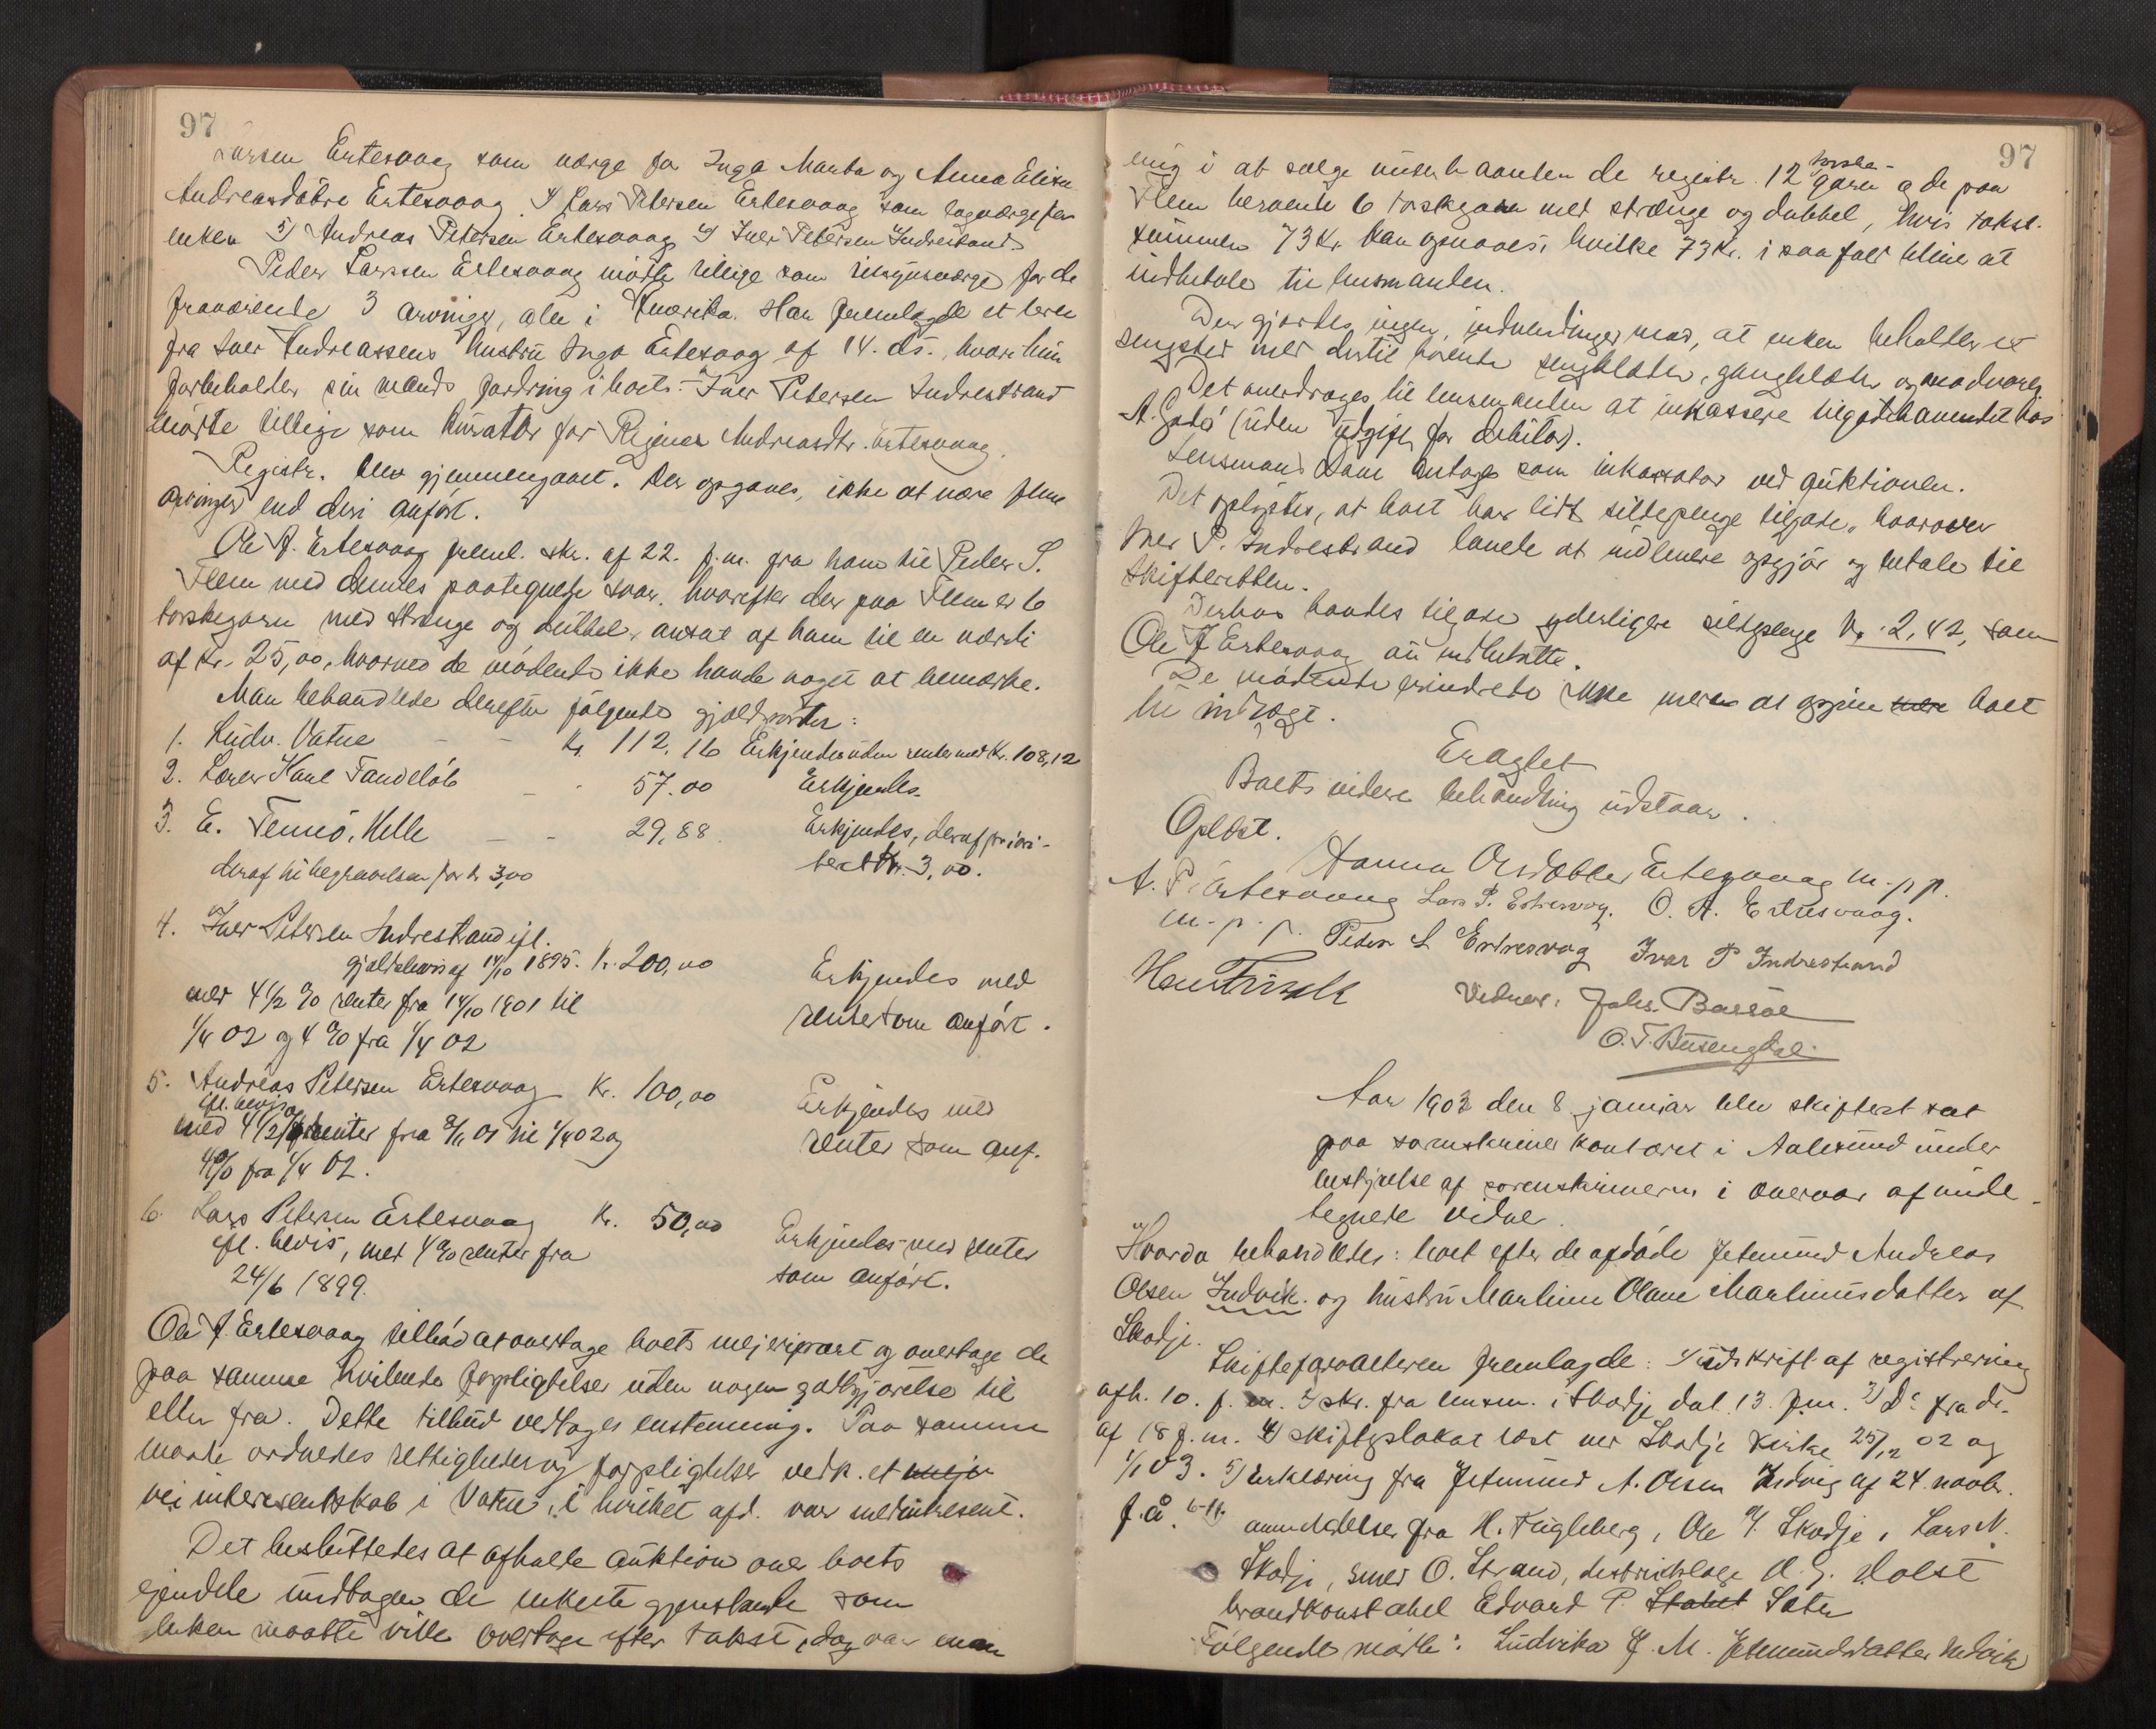 97
Larsen Ertesvaag som værge for Inga Marta og Anna Elise
Andreasdøtre Ertesvaag. 4) Lars Petersen Ertesvaag som lagværge for
enken 5) Andreas Petersen Ertesvaag 6) Iver Petersen Indrestrand
Peder Larssen Ertesvaag mødte tillige som tilsynsværge for de
fraværende 3 arvinger, alle i Amerika. Han fremlagde et brev
fra Iver Andreassens hustru Inga Ertesvaag af 14. ds., hvori hun
forbeholder sin mands fordring i boet. Iver Petersen Indrestrand
mødte tillige som kurator for Regine Andreasdtr. Ertesvaag.
Registr. blev gjennemgaaet. Der opgaves, ikke at være flere
arvinger end deri anført.
Ole A. Ertesvaag freml. skr. af 22. f.m. fra ham til Peder S.
Flem med dennes paategnede svar, hvorefter der paa Flem er 6
torskegarn med strenge og dubbel, ansat af ham til en værdi
af kr. 25,00, hvorved de mødende ikke havde noget at bemærke.
Man behandlede derefter følgende gjældsposter:
1. Ludv. Vatne - - Kr. 112,16 Erkjendes uden renter med Kr. 108,12
2. Lærer Karl Tandeløb - - 57.00 Erkjendes.
3. E. Tennø, Helle - - 29,88 Erkjendes, deraf priori-
deraf til begravelsen for kr 3,00 tert Kr. 3,00.
4. Iver Petersen Indrestrand ifl.
gjældsbevis af 14/10 1895. Kr. 200,00 Erkjendes med
med 4 1/2 % renter fra 14/10 1901 til renter som anført.
1/4 02 og 4 % fra 1/4 02
5. Andreas Petersen Ertesvaag Kr. 100,00 Erkjendes med
ifl. bevis
med 4 1/2 % renter fra 01 til 1/4 02 og renter som anf.
4 % fra 1/4 02.
6. Lars Petersen Ertesvaag Kr. 50,00 Erkjendes med renter
ifl. bevis, med 4 % renter fra som anført.
24/6 1899.
Ole A. Ertesvaag tilbød at overtage boets mejeripart og overtage de
paa samme hvilende forpligtelser uden nogen godtgjørelse til
eller fra. Dette tilbud vedtages enstemmig. Paa samme
maade ordnedes rettigheder og forpligtelser vedk. et meje
vei interessentskab i Vatne, i hvilket afd. var medintresent.
Det besluttedes at afholde auktion over boets
ejendele undtagen de enkelte gjenstande som
enken maatte ville overtage efter takst, dog var man
97
enig i at sælge underhaanden de registr. 12 torske-garn a de paa
Flem beroende 6 torskegarn med strænge og dubbel, hvis takst-
summen 73 Kr. kan opnaaes, hvilke 73 Kr. i saa fald bliver at
indbetale til lensmanden.
Der gjordes ingen indvendinger mod, at enken beholder et
sengested med dertil hørende sengklæder, gangklæder og madvarer
Det overdrages til lensmanden at inkassere tilgodehavendet hos
A. Gadø (uden udgift for debitor).
Lensmand Dane antages som inkassator ved auktionen.
Det oplystes, at boet har lidt sildepenge tilgode, hvorover
Iver P. Indrestrand lovede at indlevere opgjør og betale til
skifteretten.
Derhos havdes tilgode yderligere sildepenge Kr. 2,42, som
Ole A Ertesvaag nu indbetalte.
De mødende erindrede ikke mere at opgive være boet
til indtægt.
Eragtet
Boets videre behandling udstaar.
Oplæst.
Hanna Olsdatter Ertesvaag m.p.p.
A. P. Ertesvaag Lars P. Ertesvaag. O. A. Ertesvaag.
m.p.p. Peder L Ertresvaag Ivar P Indrestrand
Vidner: Johs. Bassøe
Aar 1903 den 8 januar blev skifteret sat
paa sorenskriverkontoret i Aalesund under
bestyrelse af sorenskriveren i overvær af unde-
tegnede vidne.
Hvorda behandles: boet efter de afdøde Jetmund Andreas
Olsen Indvik og hustru Martine Olave Martinusdatter af
Skodje.
Skifteforvalteren fremlagde: 1) Udskrift af registrering
afh. 10. f. m. 2) skr. fra lensm. i Skodje dat. 13. f.m. 3) Do fra do.
af 18 f.m. 4) skifteplakat læst ved Skodje kirke 25/12 02 og
1/1 03. 5) Erklæring fra Jetmund A. Olsen Indvig af 24. novbr.
f.å. 6-11. anmeldelser fra H. Fugleberg, Ole Skodje, Lars N.
Skodje, smed O. Strand, distriktslæge Holst
brandkonstabel Edvard P. Sæter
Følgende mødte: Ludvika J. M. Jetmundsdatter Indvik